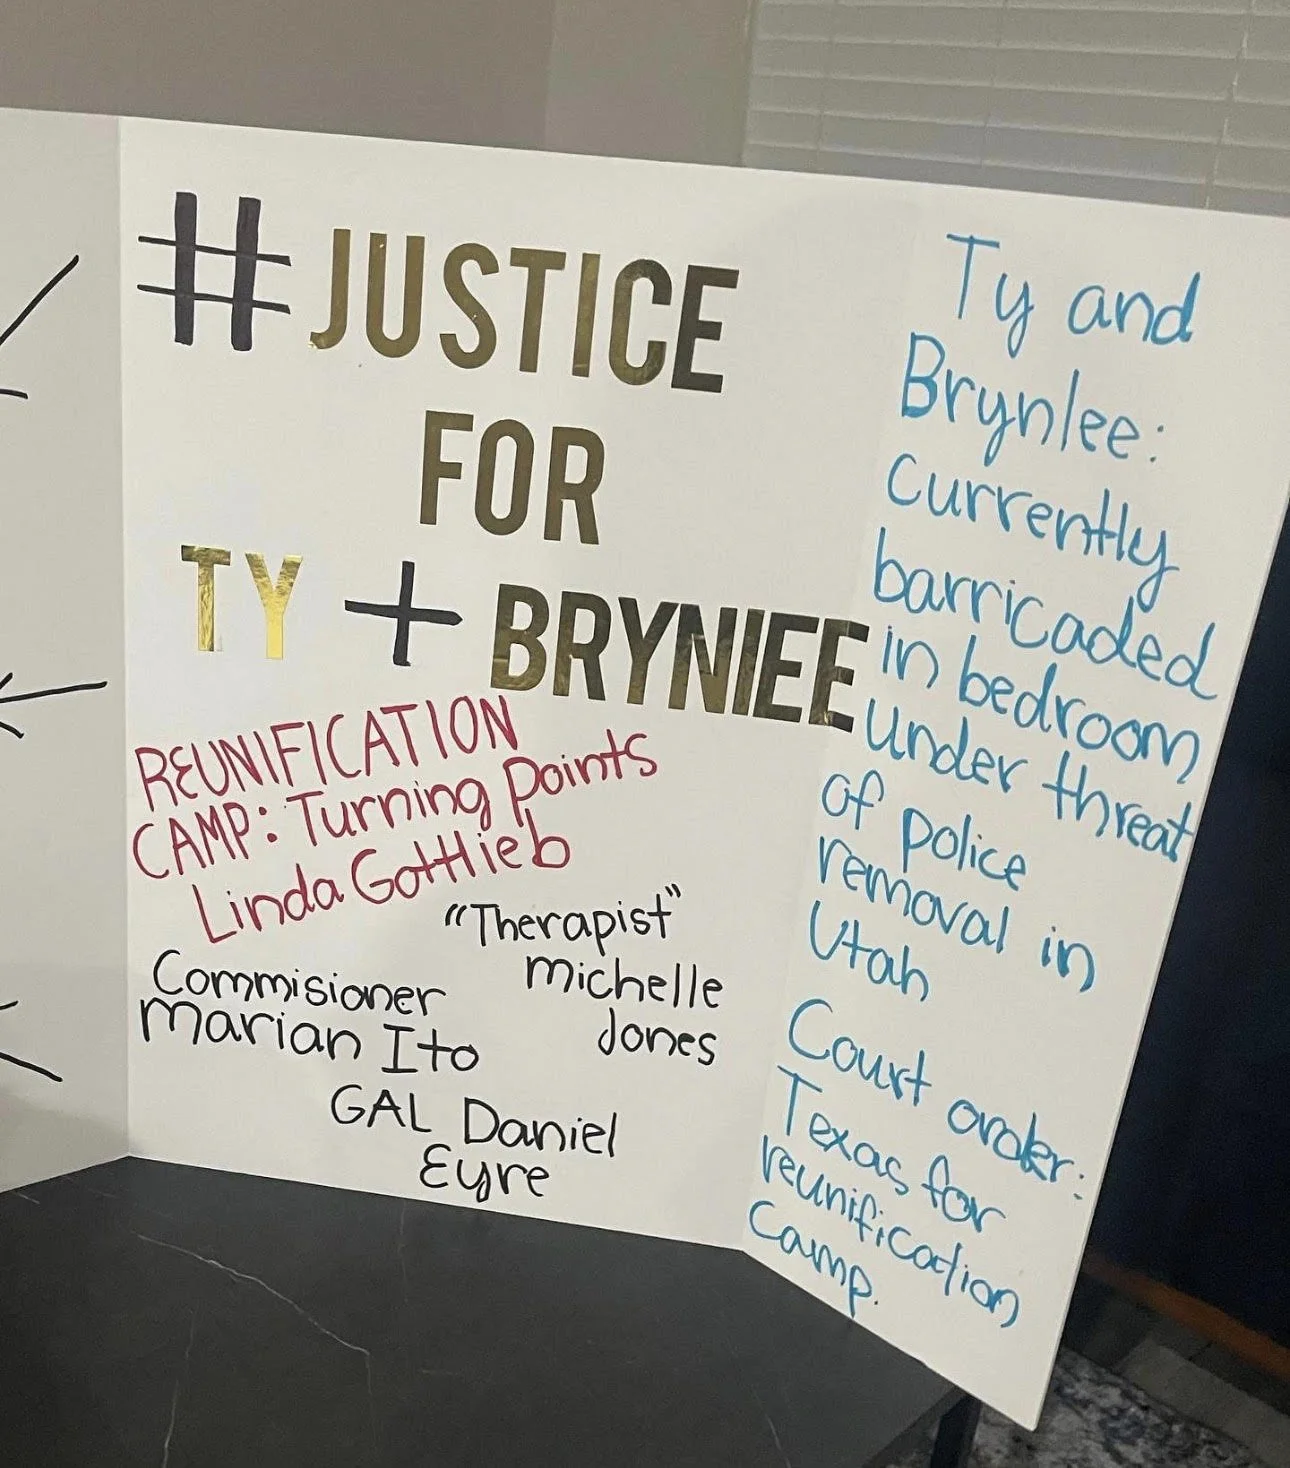 # JUSTICE
FOR
TY + BRYNIEE
REUNIFICATION
CAMP: Turning Points
Linda Gottlieb
"Therapist"
Michelle
Jones
Commisioner
Marian Ito
GAL Daniel
Eyre
Ty and
Brynlee:
Currently
barricaded
in bedroom
under threat
of police
removal in
Utah
Court order:
Texas for
reunification
Camp.